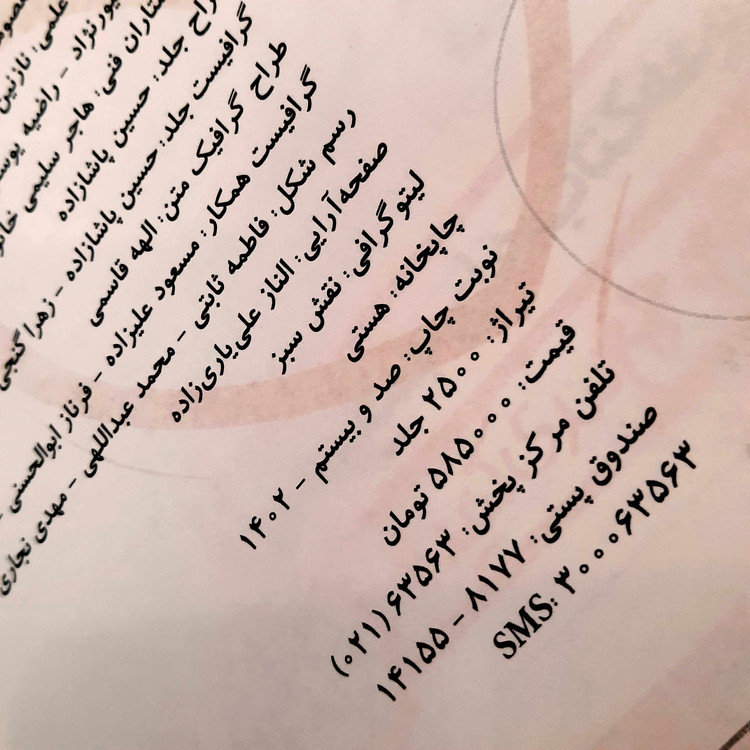 علمی: نازنین
پورنژاد - راضیه یوسف
ستاران فنی: هاجر سلیمی
طراح جلد: حسین پاشازاده
گرافیست جلد: حسین پاشازاده - زهرا گنجی
طراح گرافیک متن: الهه قاسمی
گرافیست همکار: مسعود علیزاده - فرناز ابوالحسنی -
رسم شکل: فاطمه ثابتی - محمد عبداللهی - مهدی نجاری
صفحه‌آرایی: الناز علی‌یاری‌زاده
لیتوگرافی: نقش سبز
چاپخانه: هستی
نوبت چاپ: صد و بیستم - ۱۴۰۲
تیراژ: ۲۵۰۰ جلد
قیمت: ۵۸۵۰۰۰ تومان
تلفن مرکز پخش: ۶۳۵۶۳ (۰۲۱)
صندوق پستی: ۸۱۷۷ - ۱۴۱۵۵
SMS: ۳۰۰۰۶۳۵۶۳